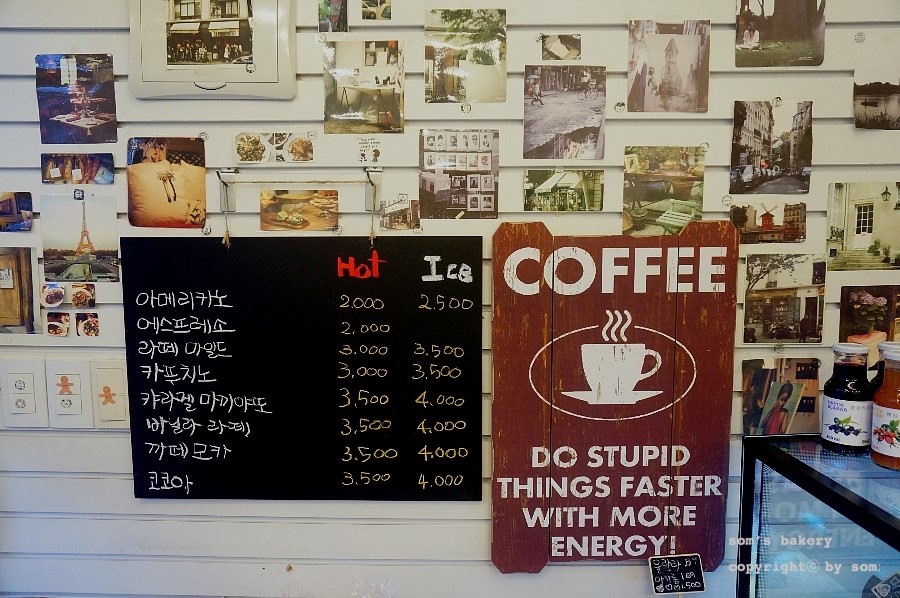 Hot Ice
아메리카노 2.000 2.500
에스프레소 2,000
라떼 마일드 3.000 3,500
카프치노 3,000 3,500
캬라멜 마끼야또 3,500 4.000
바닐라 라떼 3,500 4.000
까페 모카 3.500 4000
코코아 3.500 4.000
COFFEE
DO STUPID
THINGS FASTER
WITH MORE
ENERGY!
som's bakery
copyright© by som.